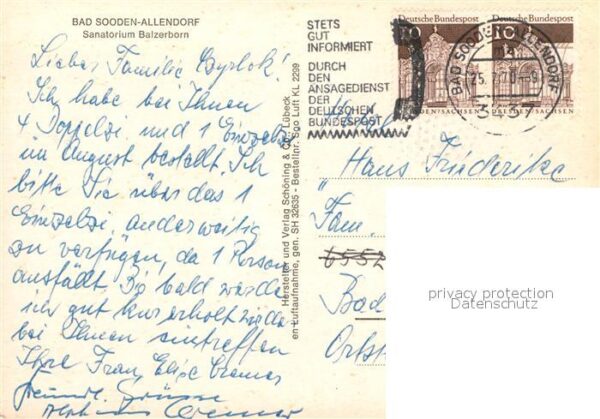 BAD SOODEN-ALLENDORF
Sanatorium Balzerborn
Liebe Familie
Ich habe bei Ihnen
4 Doppelzi. und 1 Einzelzi.
im August bestellt. Ich
bitte Sie über das 1
Einzelzi. anderweitig
zu verfügen, da 1 Person
ausfällt. Bis bald werde
ich gut kurerholt
bei Ihnen eintreffen
Ihre Frau Elise Cremer
Freundl. Grüsse
Cremer
Hersteller und Verlag Schöning & Co., Lübeck
en Luftaufnahme, gen. SH 32635 - Bestellnr. Sgo Luft KL 2239
STETS
GUT
INFORMIERT
DURCH
DEN
ANSAGEDIENST
DER
DEUTSCHEN
BUNDESPOST
Deutsche Bundespost Deutsche Bundespost
10 10
DRESDEN/SACHSEN DRESDEN/SACHSEN
BAD SOODEN-ALLENDORF
Haus Friederike
Fam.
Bad
privacy protection
Datenschutz